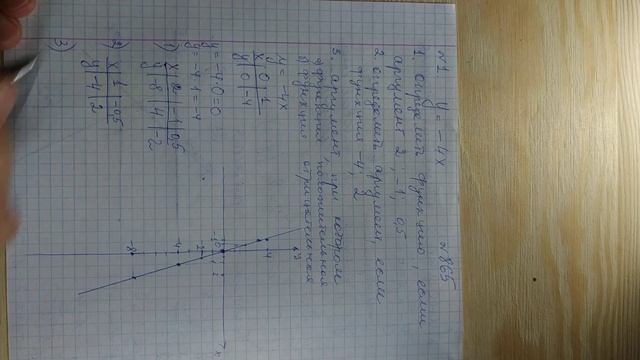 №1 y = -4x № 865
1. определить функцию, если
аргумент 2; -1; 0,5
2. определить аргумент, если
функция -4; 2
3. аргумент, при котором
функция положительная
функция отрицательная
y = -4x
x | 0 | 1
y | 0 | -4
y = -4·0 = 0
y = -4·1 = -4
1) x | 2 | -1 | 0,5
y | -8 | 4 | -2
2) x | 1 | -0,5
y | -4 | 2
3)